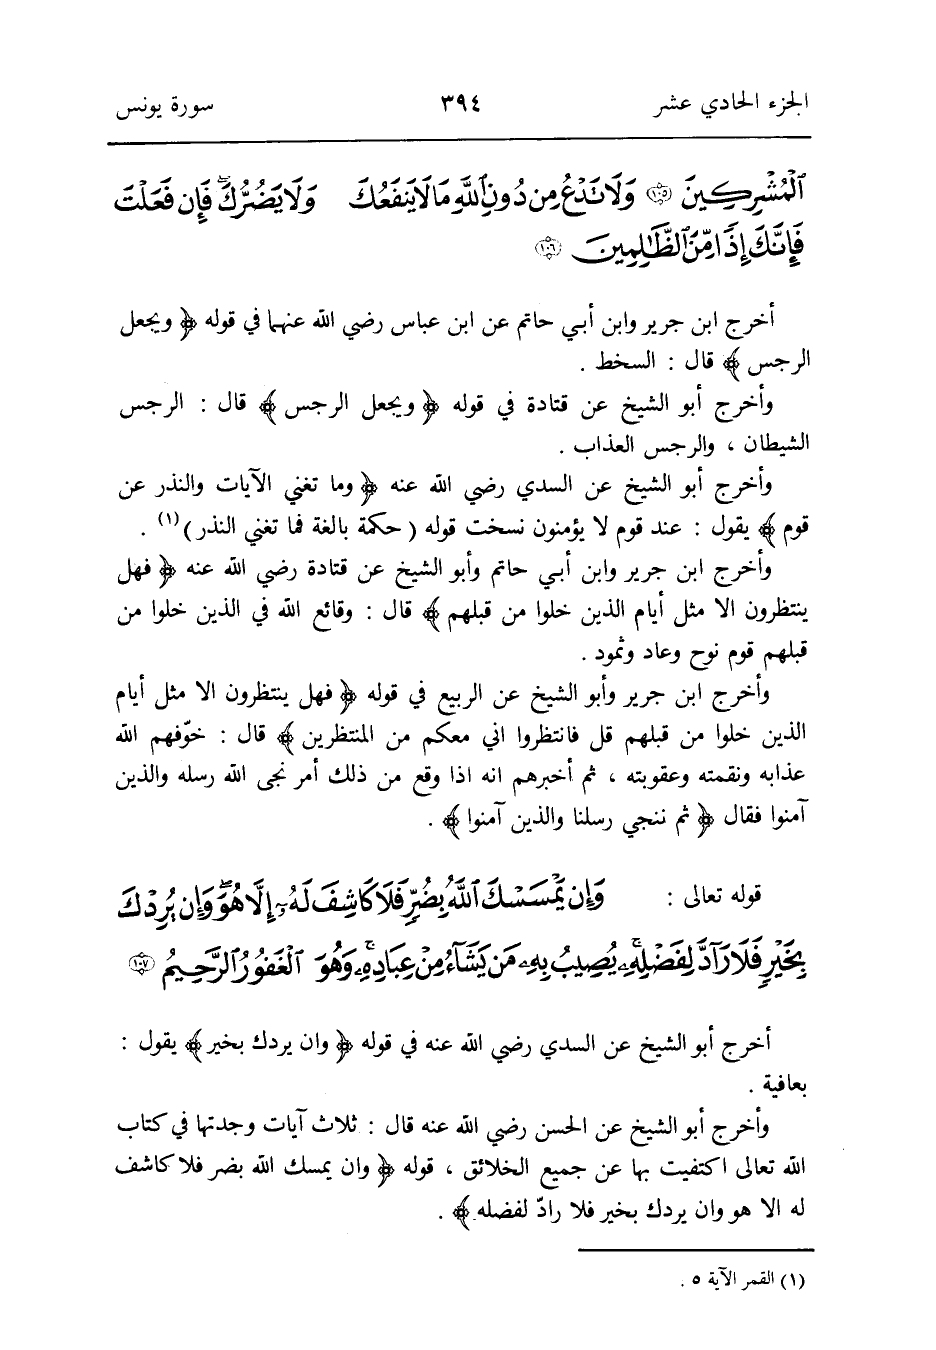 الجزء الحادي عشر ٣٩٤ سورة يونس
ٱلْمُشْرِكِينَ ۝١٠٥ وَلَا تَدْعُ مِن دُونِ ٱللَّهِ مَا لَا يَنفَعُكَ وَلَا يَضُرُّكَ ۖ فَإِن فَعَلْتَ
فَإِنَّكَ إِذًا مِّنَ ٱلظَّٰلِمِينَ ۝١٠٦
أخرج ابن جرير وابن أبـي حاتم عن ابن عباس رضي الله عنهما في قوله ﴿ ويجعل
الرجس ﴾ قال : السخط .
وأخرج أبو الشيخ عن قتادة في قوله ﴿ ويجعل الرجس ﴾ قال : الرجس
الشيطان ، والرجس العذاب .
وأخرج أبو الشيخ عن السدي رضي الله عنه ﴿ وما تغني الآيات والنذر عن
قوم ﴾ يقول : عند قوم لا يؤمنون نسخت قوله ( حكمة بالغة فما تغني النذر )(١) .
وأخرج ابن جرير وابن أبـي حاتم وأبو الشيخ عن قتادة رضي الله عنه ﴿ فهل
ينتظرون الا مثل أيام الذين خلوا من قبلهم ﴾ قال : وقائع الله في الذين خلوا من
قبلهم قوم نوح وعاد وثمود .
وأخرج ابن جرير وأبو الشيخ عن الربيع في قوله ﴿ فهل ينتظرون الا مثل أيام
الذين خلوا من قبلهم قل فانتظروا اني معكم من المنتظرين ﴾ قال : خوّفهم الله
عذابه ونقمته وعقوبته ، ثم أخبرهم انه اذا وقع من ذلك أمر نجى الله رسله والذين
آمنوا فقال ﴿ ثم ننجي رسلنا والذين آمنوا ﴾ .
قوله تعالى : وَإِن يَمْسَسْكَ ٱللَّهُ بِضُرٍّ فَلَا كَاشِفَ لَهُۥٓ إِلَّا هُوَ ۖ وَإِن يُرِدْكَ
بِخَيْرٍ فَلَا رَآدَّ لِفَضْلِهِۦ ۚ يُصِيبُ بِهِۦ مَن يَشَآءُ مِنْ عِبَادِهِۦ ۚ وَهُوَ ٱلْغَفُورُ ٱلرَّحِيمُ ۝١٠٧
أخرج أبو الشيخ عن السدي رضي الله عنه في قوله ﴿ وان يردك بخير ﴾ يقول :
بعافية .
وأخرج أبو الشيخ عن الحسن رضي الله عنه قال : ثلاث آيات وجدتها في كتاب
الله تعالى اكتفيت بها عن جميع الخلائق ، قوله ﴿ وان يمسك الله بضر فلا كاشف
له الا هو وان يردك بخير فلا رادّ لفضله ﴾ .
(١) القمر الآية ٥ .